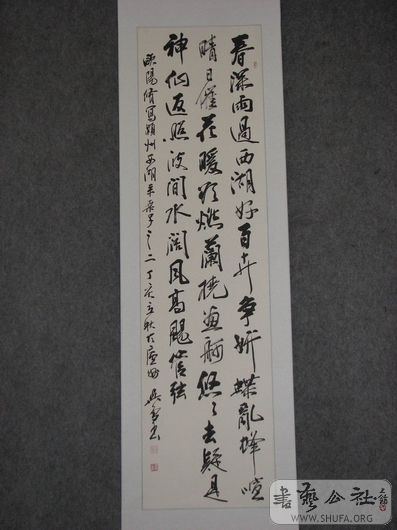 春深雨過西湖好百卉争妍蝶亂蜂喧
晴日催花暖欲燃蘭橈画舸悠々去疑是
神仙返照波間水阔風高颺管弦
歐陽脩寫潁州西湖采桑子之二丁亥立秋於
書藝公社
WWW.SHUFA.ORG